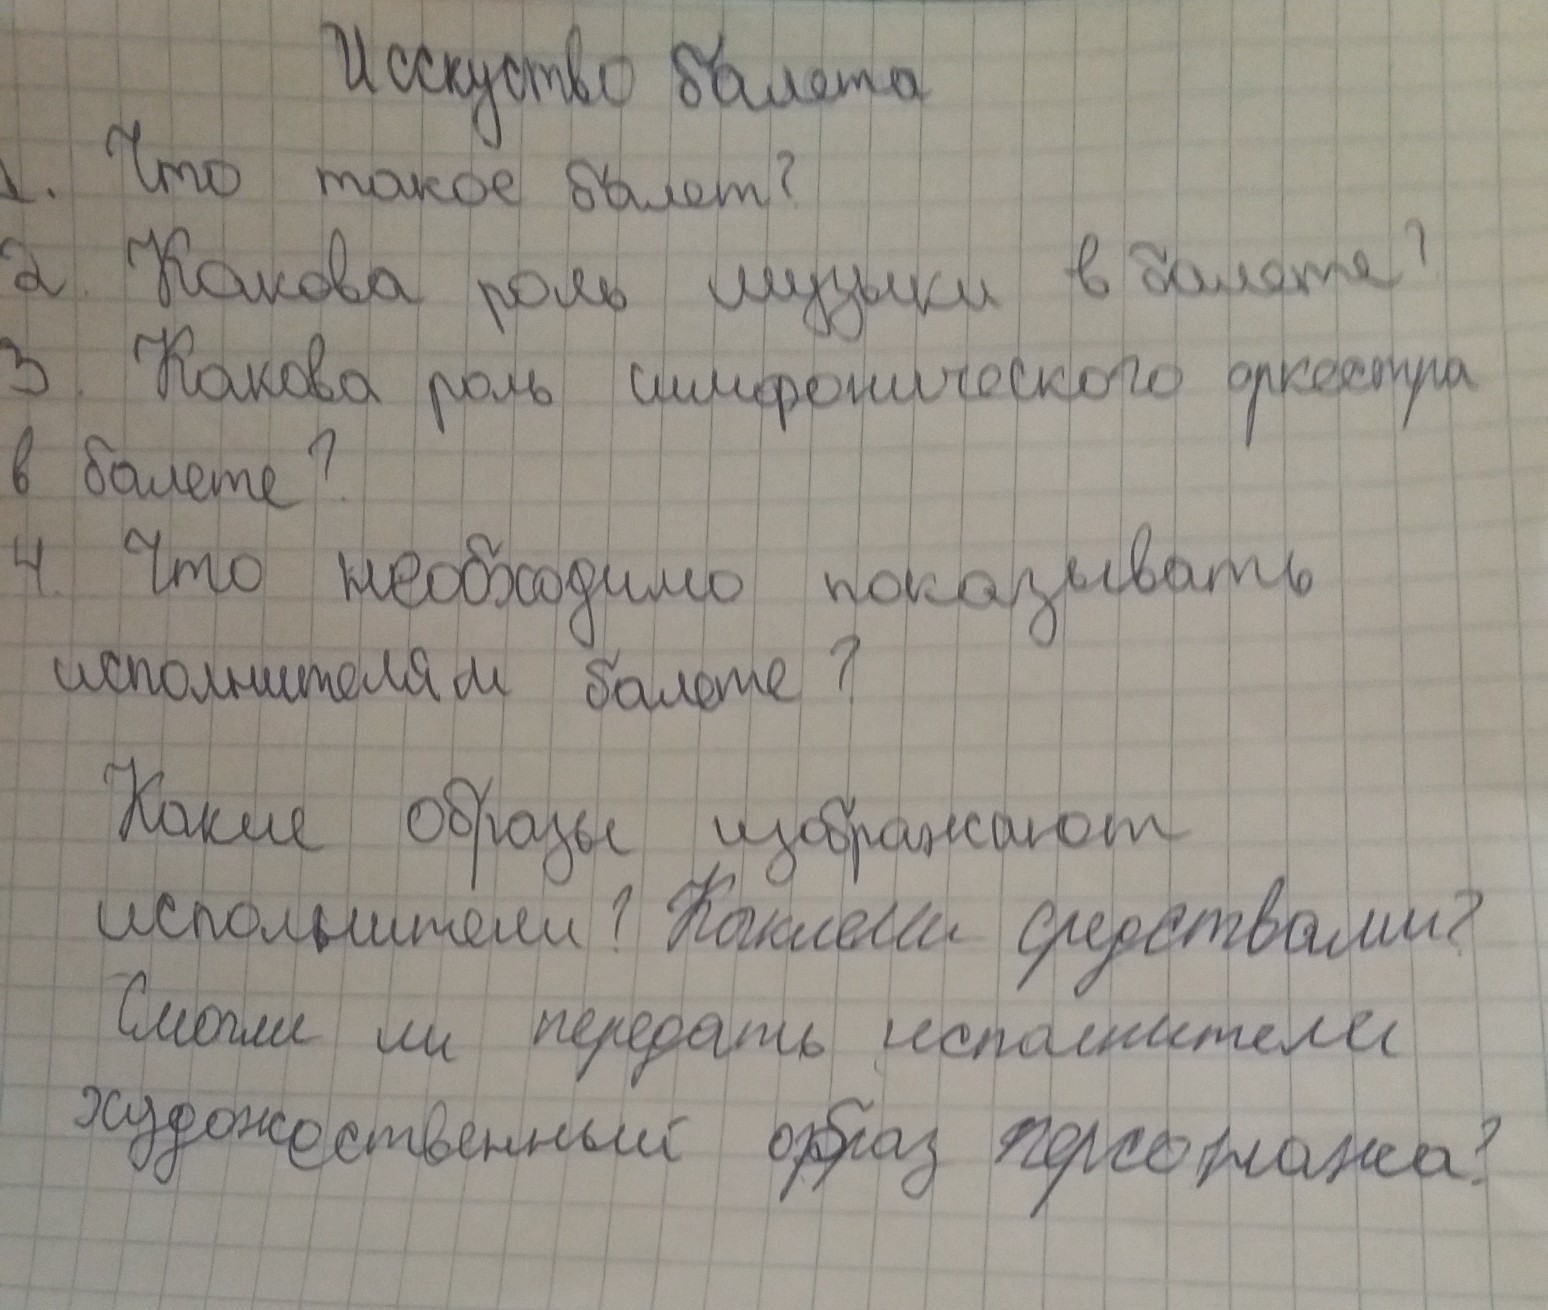 Исскуство балета
1. Что такое балет?
2. Какова роль музыки в балете?
3. Какова роль симфонического оркестра
в балете?
4. Что необходимо показывать
исполнителям балете?
Какие образы изображают
исполнители? Какими средствами?
Смогли ли передать исполнители
художественный образ персонажа?